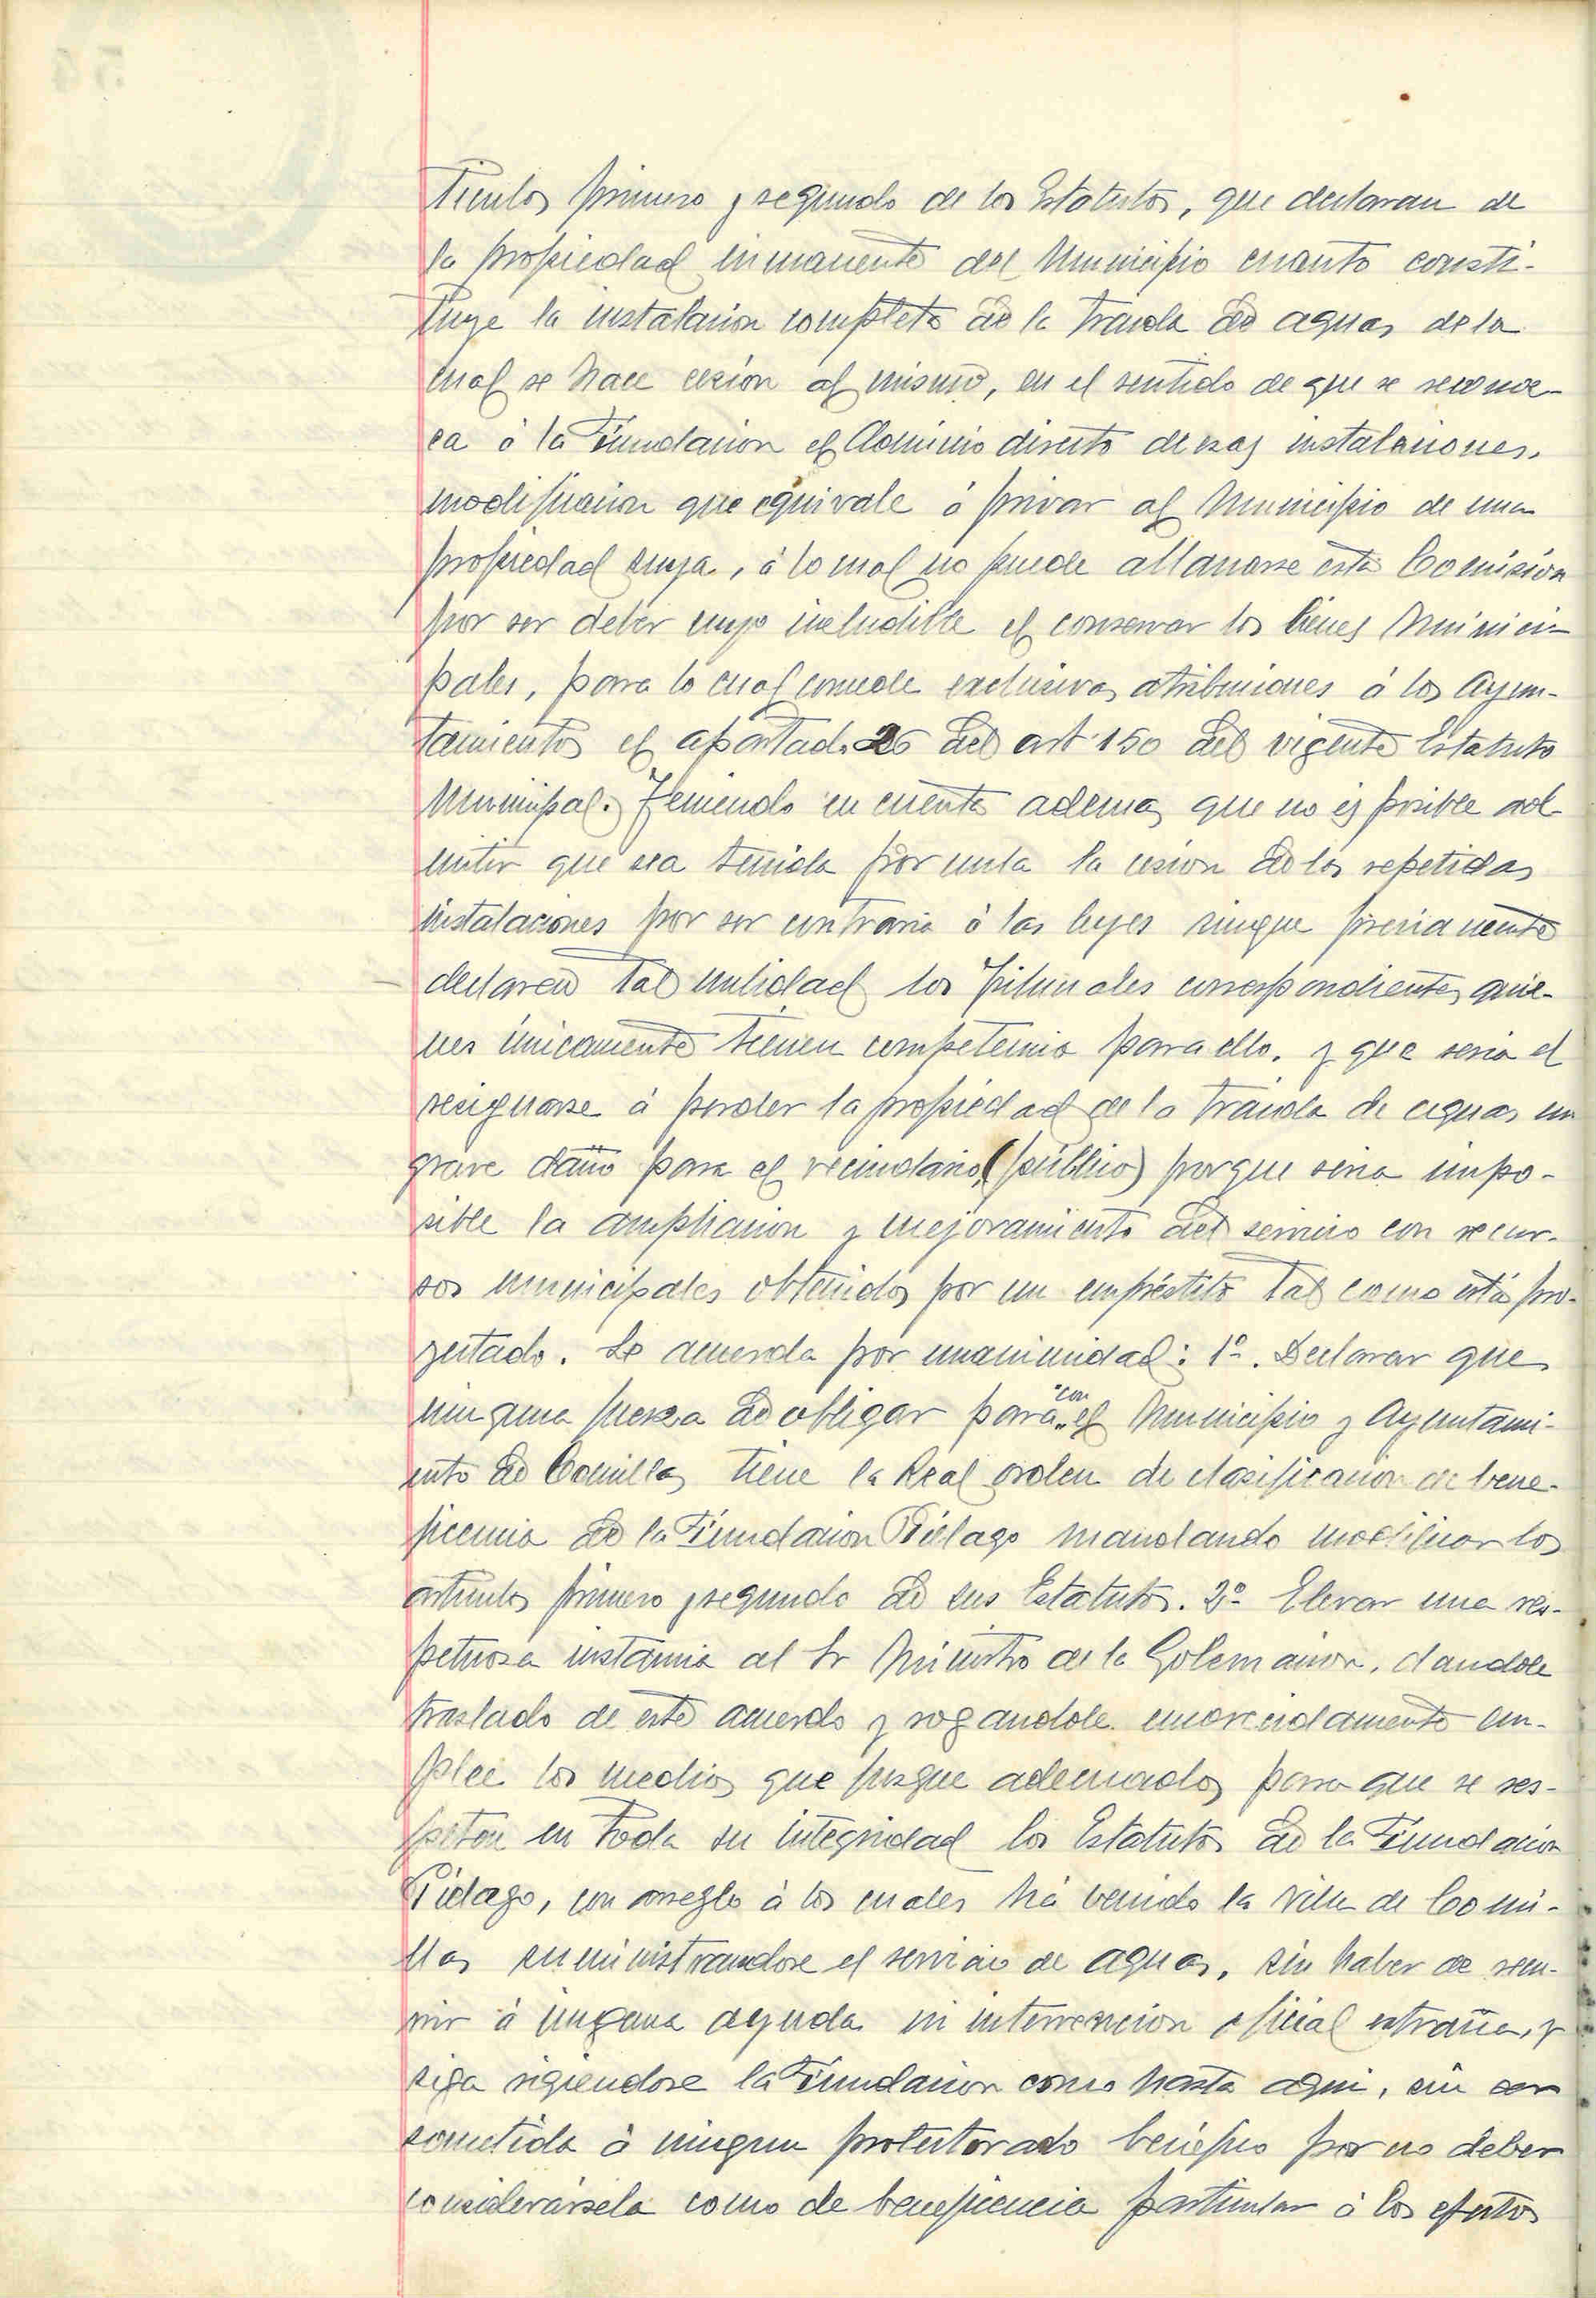 ticulos primero y segundo de los Estatutos, que declaran de
la propiedad inmanente del Municipio cuanto consti-
tuye la instalacion completa de la traida de aguas de la
cual se hace cesion al mismo, en el sentido de que se reconoz-
ca á la Fundacion el dominio directo de esas instalaciones.
modificacion que equivale á privar al Municipio de una
propiedad suya, á lo cual no puede allanarse esta Comision
por ser deber suyo ineludible el conservar los bienes Munici-
pales, para lo cual concede exclusivas atribuciones á los Ayun-
tamientos el apartado 26 del art. 150 del vigente Estatuto
Municipal. Teniendo en cuenta ademas que no es posible ad-
mitir que sea tenida por nula la cesion de las repetidas
instalaciones por ser contraria á las leyes sinque previamente
declaren tal nulidad los Tribunales correspondientes quie-
nes únicamente tienen competencia para ello. y que seria el
resignarse á perder la propiedad de la traida de aguas un
grave daño para el vecindario, (público) porque seria impo-
sible la ampliacion y mejoramiento del servicio con recur-
sos municipales obtenidos por un empréstito tal como está pro-
yectado. Se acuerda por unanimidad: 1º. Declarar que
ninguna fuerza de obligar para "con" el Municipio y Ayuntami-
ento de Comillas tiene la Real orden de clasificacion de bene-
ficencia de la Fundacion Piélago mandando modificar los
articulos primero y segundo de sus Estatutos. 2º Elevar una res-
petuosa instancia al Sr Ministro de la Gobernacion, dandole
traslado de este acuerdo y rogandole encarecidamente em-
plee los medios que juzgue adecuados para que se res-
peten en toda su integridad los Estatutos de la Fundacion
Piélago, con arreglo á los cuales há venido la Villa de Comi-
llas suministrandose el servicio de aguas, sin haber de recu-
rrir á ninguna ayuda ni intervencion oficial extraña, y
siga rigiendose la Fundacion como hasta aqui, sin ser
sometida á ningun protectorado benéfico por no deber
considerársela como de beneficencia particular á los efectos